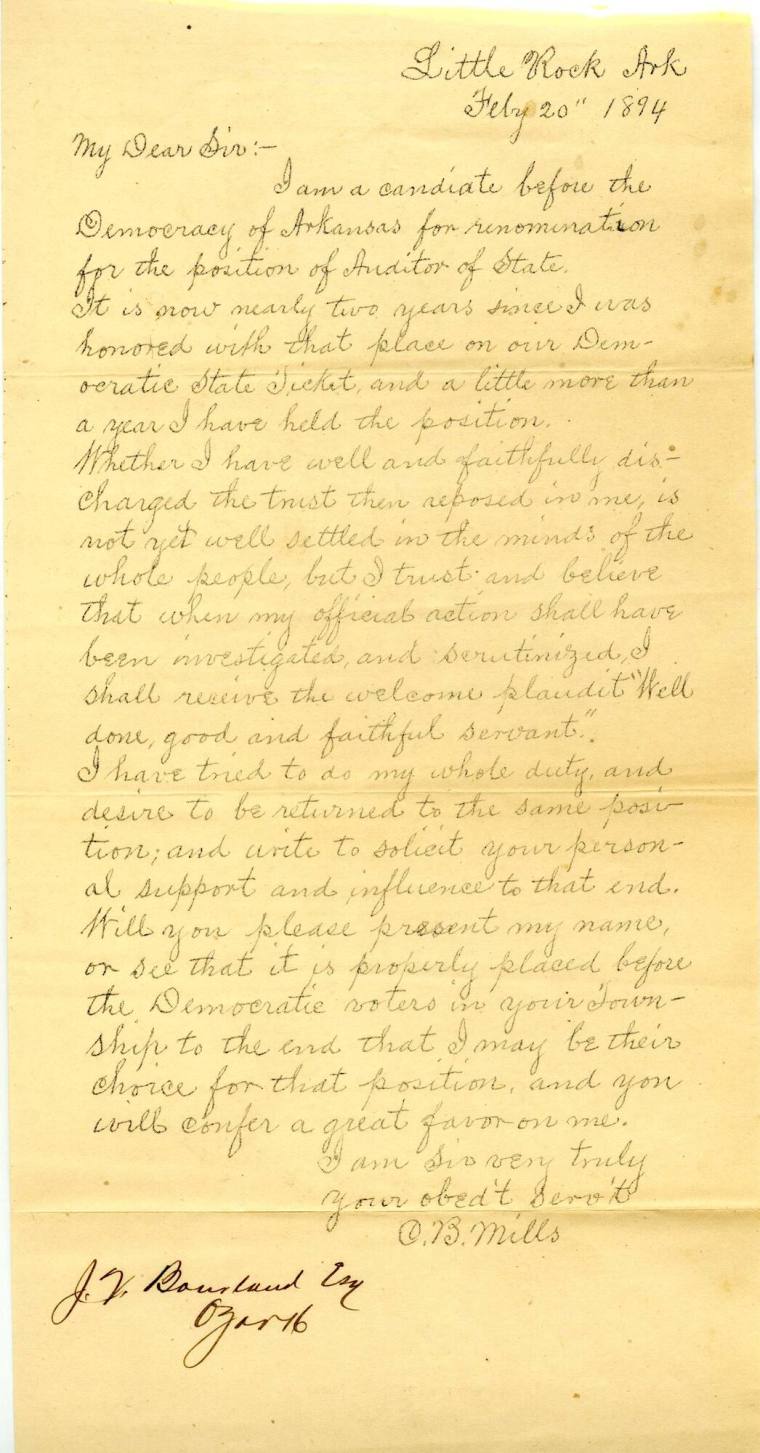 Little Rock Ark
Feby 20" 1894
My Dear Sir:-
I am a candiate before the
Democracy of Arkansas for renomination
for the position of Auditor of State.
It is now nearly two years since I was
honored with that place on our Dem-
ocratic State Ticket, and a little more than
a year I have held the position.
Whether I have well and faithfully dis-
charged the trust then reposed in me, is
not yet well settled in the minds of the
whole people, but I trust and believe
that when my official action shall have
been investigated, and scrutinized, I
shall receive the welcome plaudit "Well
done, good and faithful servant".
I have tried to do my whole duty, and
desire to be returned to the same posi-
tion; and write to solicit your person-
al support and influence to that end.
Will you please present my name,
or see that it is properly placed before
the Democratic voters in your Town-
ship to the end that I may be their
choice for that position, and you
will confer a great favor on me.
I am Sir very truly
your obed't serv't
C.B. Mills
J. V. Bourland Esq
Ozark